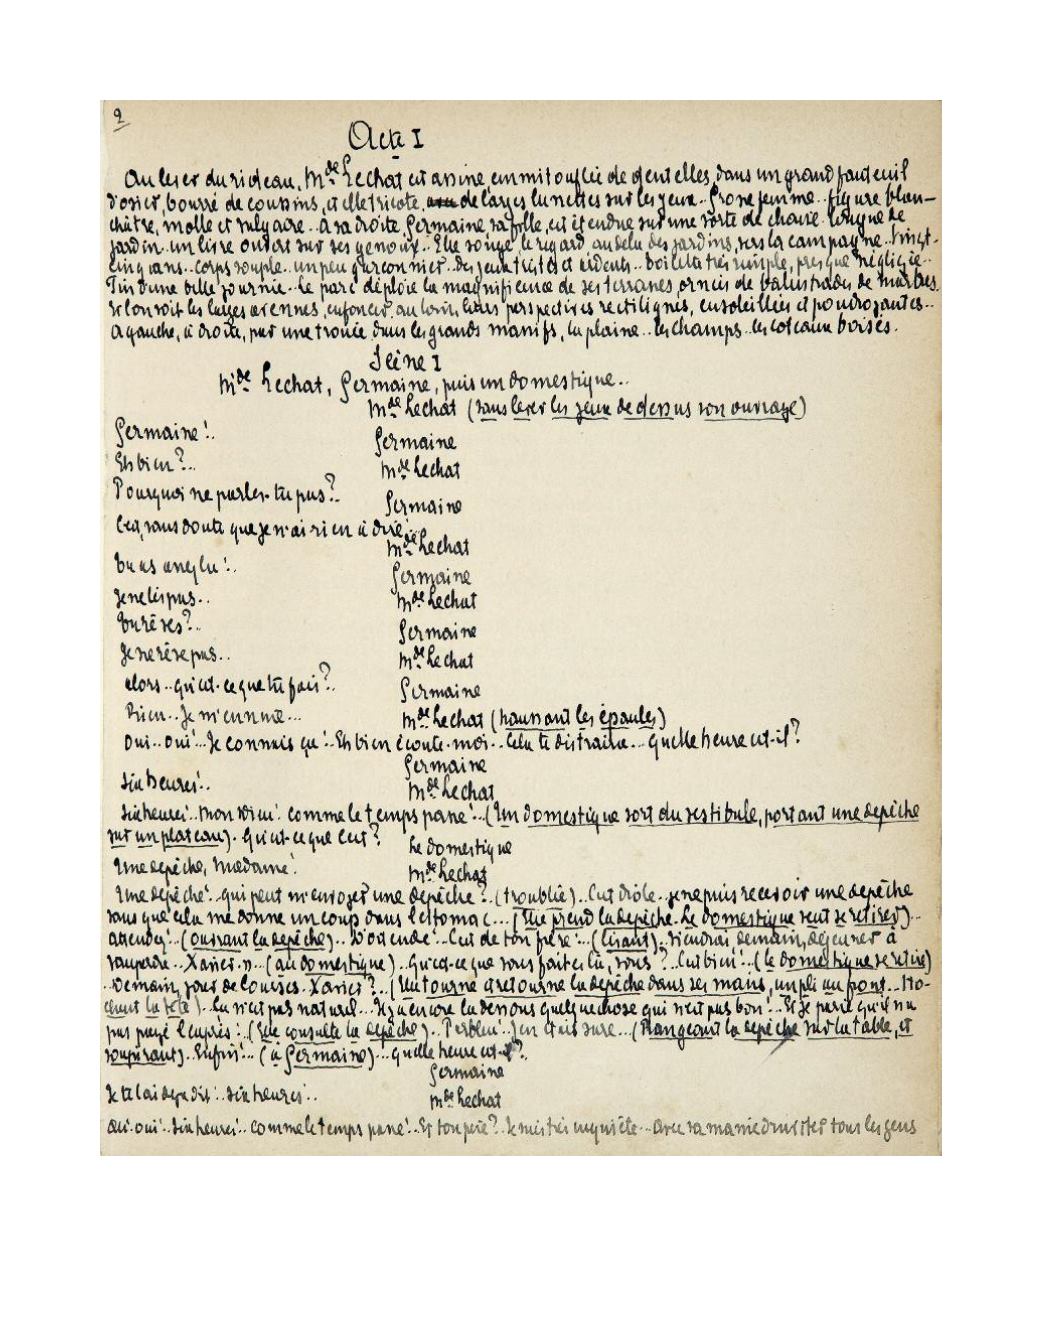 2
Acte I
Au lever du rideau, Mde Lechat est assise, emmitouflée de dentelles, dans un grand fauteuil
d'osier, bourré de coussins, et elle tricote, de larges lunettes sur les yeux.. Grosse femme.. figure blan-
châtre, molle et vulgaire.. à sa droite Germaine, sa fille, est étendue sur une sorte de chaise longue de
jardin.. un livre ouvert sur ses genoux.. Elle songe, le regard, au delà des jardins, vers la campagne.. Vingt-
cinq ans.. corps souple.. un peu garçonnier.. des yeux tristes et ardents.. toilette très simple, presque négligée..
Fin d'une belle journée.. Le parc déploie la magnificence de ses terrasses ornées de balustrades de marbres,
et l'on voit les larges avenues, enfoncer, au loin, leurs perspectives rectilignes, ensoleillées et poudroyantes..
à gauche, à droite, par une trouée dans les grands massifs, la plaine.. les champs.. les coteaux boisés.
Scène I
Mde Lechat, Germaine, puis un domestique..
Mde Lechat (sans lever les yeux de dessus son ouvrage)
Germaine!..
Germaine
Eh bien?..
Mde Lechat
Pourquoi ne parles-tu pas?..
Germaine
C'est, sans doute que je n'ai rien à dire..
Mde Lechat
Tu as assez lu!..
Germaine
Je ne lis pas..
Mde Lechat
Tu rêves?..
Germaine
Je ne rêve pas..
Mde Lechat
Alors.. qu'est-ce que tu fais?..
Germaine
Rien.. Je m'ennuie...
Mde Lechat (haussant les épaules)
Oui.. oui!.. Je connais ça!.. Eh bien écoute-moi.. Cela te distraira.. quelle heure est-il?
Germaine
Six heures!..
Mde Lechat
Six heures!.. mon Dieu! comme le temps passe!.. (Un domestique sort du vestibule, portant une dépêche
sur un plateau). Qu'est-ce que c'est?
Le domestique
Une dépêche, Madame!
Mde Lechat
Une dépêche!.. qui peut m'envoyer une dépêche?.. (troublée).. C'est drôle.. je ne puis recevoir une dépêche
sans que cela me donne un coup dans l'estomac... (Elle prend la dépêche. Le domestique veut se retirer)..
attendez!.. (ouvrant la dépêche).. D'Ostende!.. C'est de ton frère!.. (lisant).. Viendrai demain, déjeuner à
Vauperdu.. Xavier.».. (au domestique).. Qu'est-ce que vous faites là, vous?.. C'est bien!.. (le domestique se retire)
.. Demain, jour de Courses.. Xavier?.. (Elle tourne et retourne la dépêche dans ses mains, un pli au front.. Ho-
chant la tête).. Ça n'est pas naturel.. Il y a encore là-dessous quelque chose qui n'est pas bon!.. Et je parie qu'il n'a
pas payé l'exprès!.. (Elle consulte la dépêche).. Parbleu!.. j'en étais sûre.. (Rangeant la dépêche sur la table, et
soupirant).. Enfin!.. (à Germaine)... quelle heure est-il?..
Germaine
Je te l'ai déjà dit!.. Six heures!..
Mde Lechat
Oui.. oui!.. Six heures!.. comme le temps passe!.. Et ton père?.. Je suis très inquiète.. Avec sa manie d'inviter tous les gens